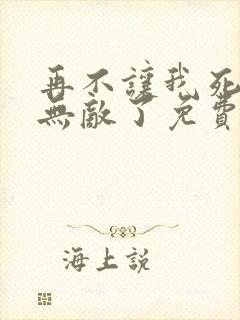 再不讓我死
無敵了免費
海上説